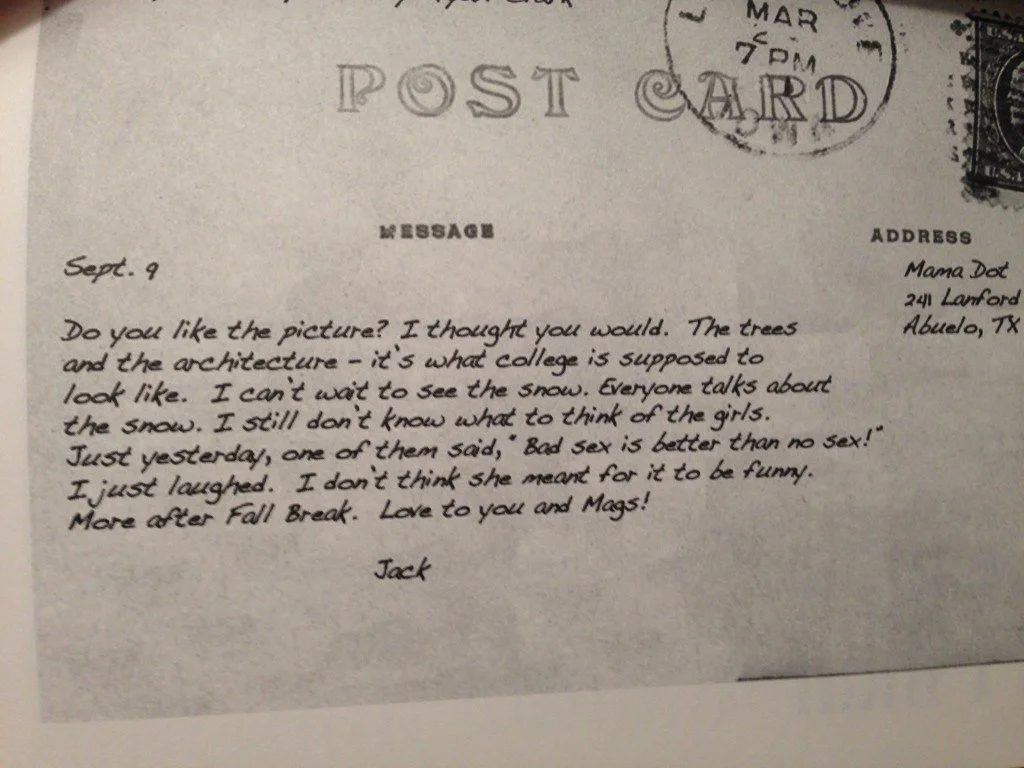 MAR
7 PM
POST CARD
MESSAGE
ADDRESS
Sept. 9
Mama Dot
241 Lanford
Abuelo, TX
Do you like the picture? I thought you would. The trees
and the architecture - it's what college is supposed to
look like. I can't wait to see the snow. Everyone talks about
the snow. I still don't know what to think of the girls.
Just yesterday, one of them said, "Bad sex is better than no sex!"
I just laughed. I don't think she meant for it to be funny.
More after Fall Break. Love to you and Mags!
Jack